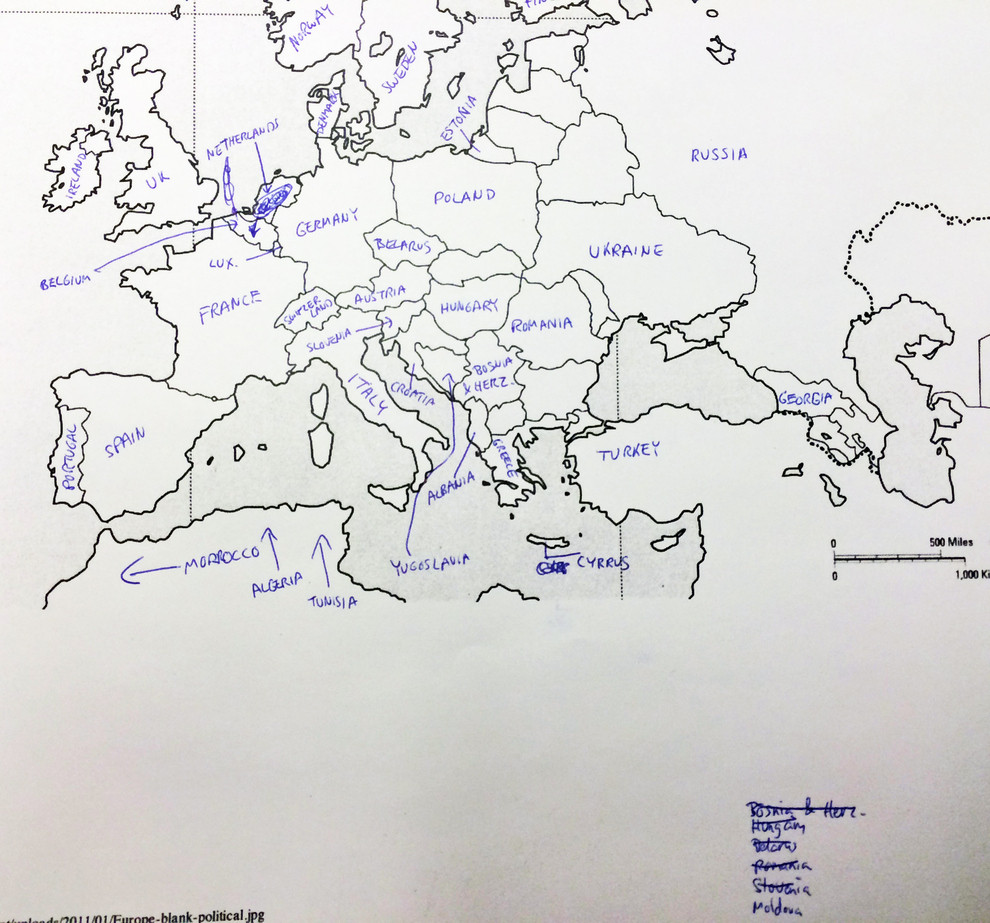 NORWAY
SWEDEN
DENMARK
ESTONIA
NETHERLANDS
IRELAND
UK
RUSSIA
POLAND
GERMANY
BELARUS
UKRAINE
BELGIUM
LUX.
FRANCE
SWITZER
LAND
AUSTRIA
HUNGARY
ROMANIA
SLOVENIA
ITALY
CROATIA
BOSNIA
& HERZ.
GEORGIA
PORTUGAL
SPAIN
GREECE
TURKEY
ALBANIA
YUGOSLAVIA
CYRRUS
MORROCCO
ALGERIA
TUNISIA
0 500 Miles
0 1,000 Ki
Bosnia & Herz.
Hungary
Belarus
Romania
Slovenia
Moldova
uploads/2011/01/Europe-blank-political.jpg